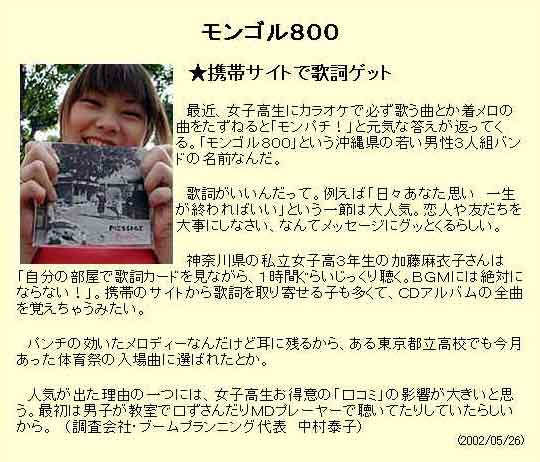 モンゴル800
★携帯サイトで歌詞ゲット
最近、女子高生にカラオケで必ず歌う曲とか着メロの
曲をたずねると「モンパチ!」と元気な答えが返ってく
る。「モンゴル800」という沖縄県の若い男性3人組バン
ドの名前なんだ。
歌詞がいいんだって。例えば「日々あなた思い 一生
が終わればいい」という一節は大人気。恋人や友だちを
大事にしなさい、なんてメッセージにグッとくるらしい。
神奈川県の私立女子高3年生の加藤麻衣子さんは
「自分の部屋で歌詞カードを見ながら、1時間ぐらいじっくり聴く。BGMには絶対に
ならない!」。携帯のサイトから歌詞を取り寄せる子も多くて、CDアルバムの全曲
を覚えちゃうみたい。
パンチの効いたメロディーなんだけど耳に残るから、ある東京都立高校でも今月
あった体育祭の入場曲に選ばれたとか。
人気が出た理由の一つには、女子高生お得意の「口コミ」の影響が大きいと思
う。最初は男子が教室で口ずさんだりMDプレーヤーで聴いてたりしていたらしい
から。 (調査会社・ブームプランニング代表 中村泰子)
(2002/05/26)
MESSAGE